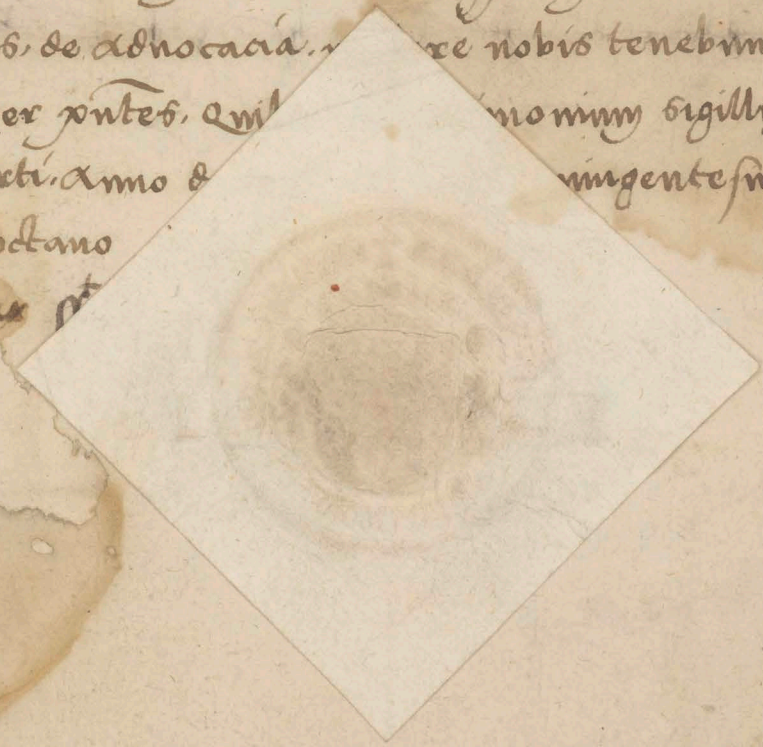 s, de aduocacia. re nobis tenebun
er pñtes. Quil monium sigilli
rti. Anno d ningentesi
octauo